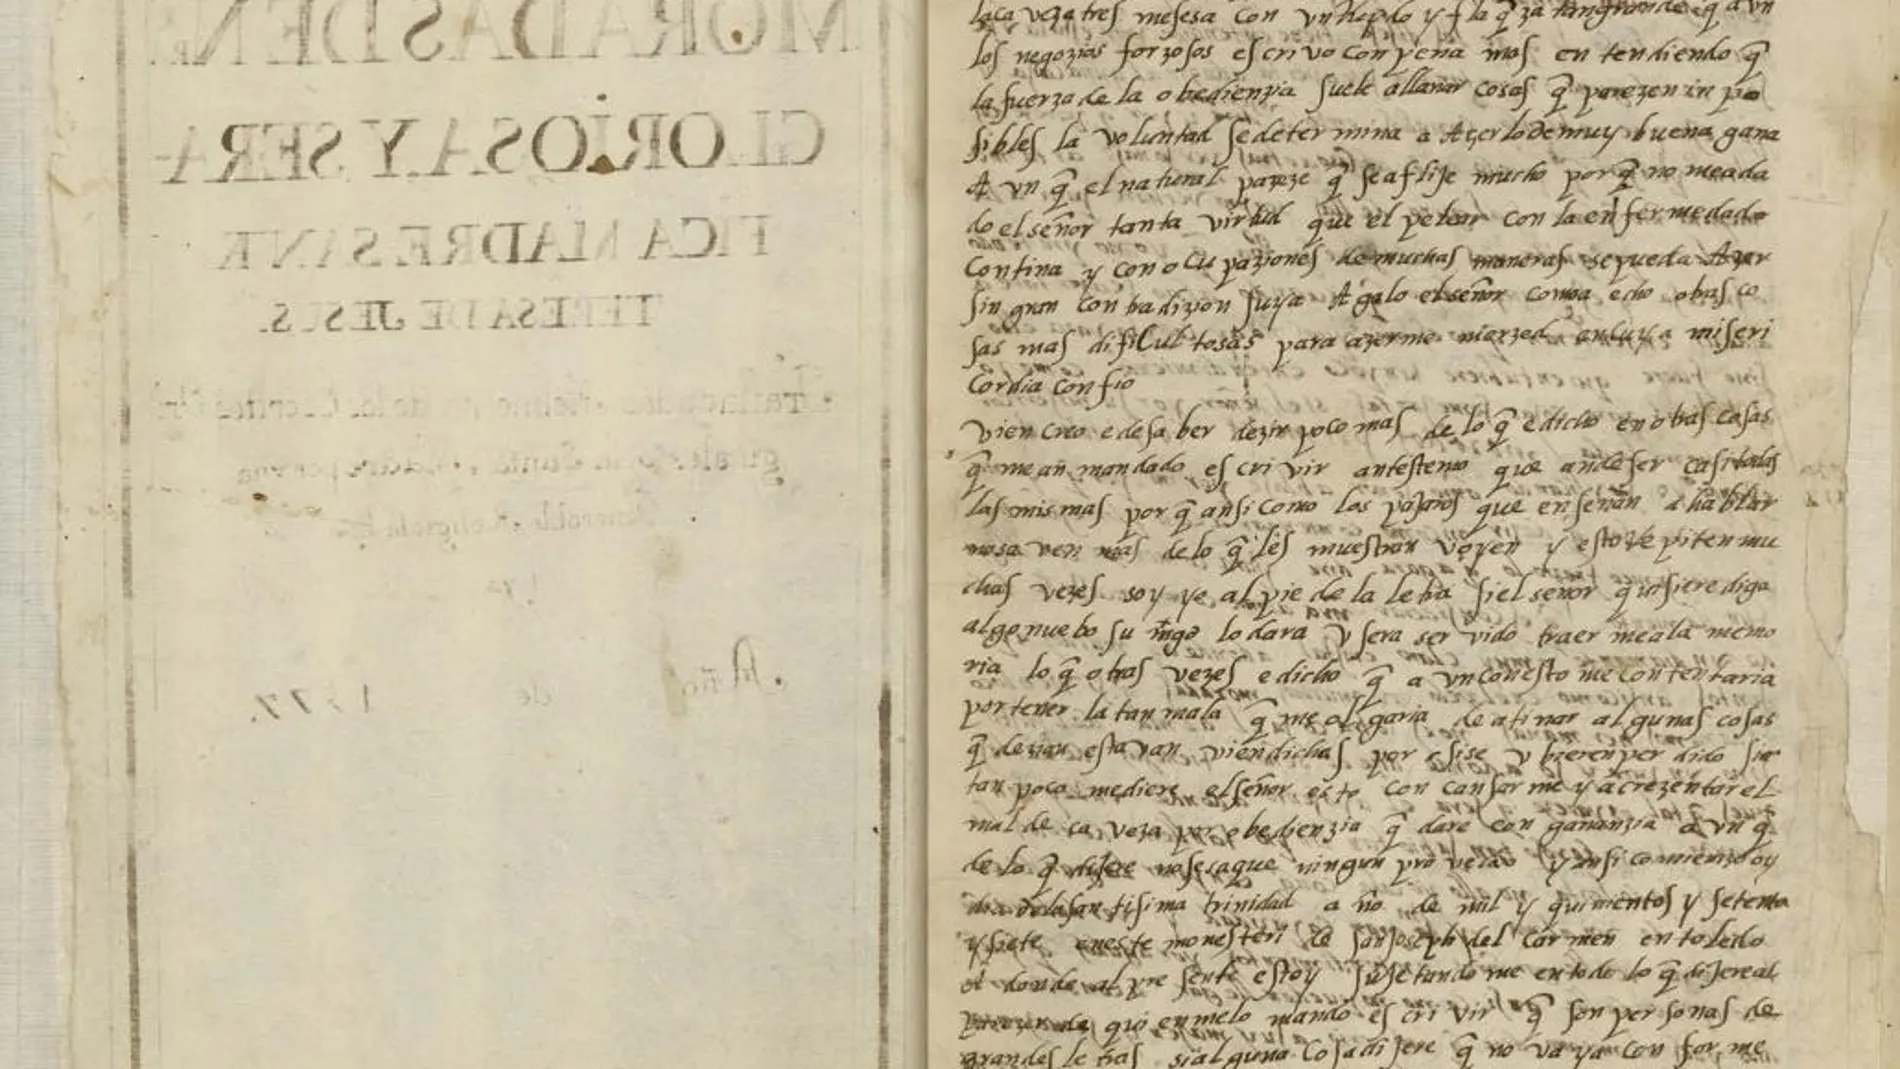 MORADAS DE N.
GLORIOSA Y SERA-
FICA MADRE SANTA
TERESA DE JESUS.
Año de 1577.
laca veza tres mesesa con un rruydo y flaq̃za tan grande q̃ aun
los negozios forzosos escrivo con pena mas entendiendo q̃
la fuerza de la obedienzia suele allanar cosas q̃ parezen inpo
sibles la voluntad se determina a Azerlo de muy buena gana
Aunq̃ el natural pareze q̃ se aflije mucho porq̃ no mea da
do el señor tanta virtud que el pelear con la enfermedad
contina y con ocupaziones de muchas maneras se pueda Azer
sin gran contradizion suya Agalo el señor como a echo otras co
sas mas dificultosas para azerme merzed en cuya miseri
cordia confio
vien creo e de saber dezir poco mas de lo q̃ e dicho en otras cosas
q̃ me an mandado escrivir antes temo que an de ser casi todas
las mismas porq̃ ansi como los pajaros que enseñan a hablar
no saven mas de lo q̃ les muestran u oyen y esto rrepiten mu
chas vezes soy yo al pie de la letra si el señor quisiere diga
algo nuebo su mag.ᵈ lo dara u sera servido traerme a la memo
ria lo q̃ otras vezes e dicho q̃ aun con esto me contentaria
por tener la tan mala q̃ me olgaria de atinar algunas cosas
q̃ dezian estavan vien dichas por si se ubieren perdido si
tan poco me diere el señor esto con cansarme y acrezentar el
mal de caveza por obedienzia q̃ dare con gananzia aunq̃
de lo q̃ dijere no se saque ningun provecho y ansi comienzo oy
dia de la santisima trinidad año de mil y quinientos y setenta
y siete en este monesterio de san Joseph del Carmen en toledo
A donde al presente estoy sujetandome en todo lo q̃ dijere al
parezer de quien me lo mando escrivir q̃ son personas de
grandes letras si alguna cosa dijere q̃ no vaya conforme